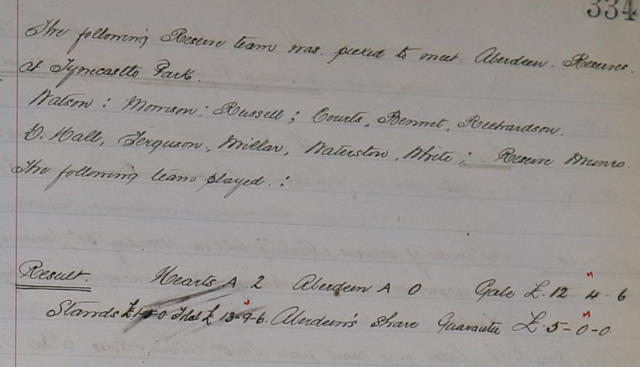 334
The following Reserve team was picked to meet Aberdeen Reserves
at Tynecastle Park.
Watson ; Morrison ; Russell ; Courts, Bennet, Richardson.
G. Hall, Ferguson, Millar, Waterston, White ; Reserve Munro.
The following team played. :
Result. Hearts A 2 Aberdeen A 0 Gate £12-4-6
Stands £1-5-0 Total £13-9-6. Aberdeen's share Guarantee £5-0-0.